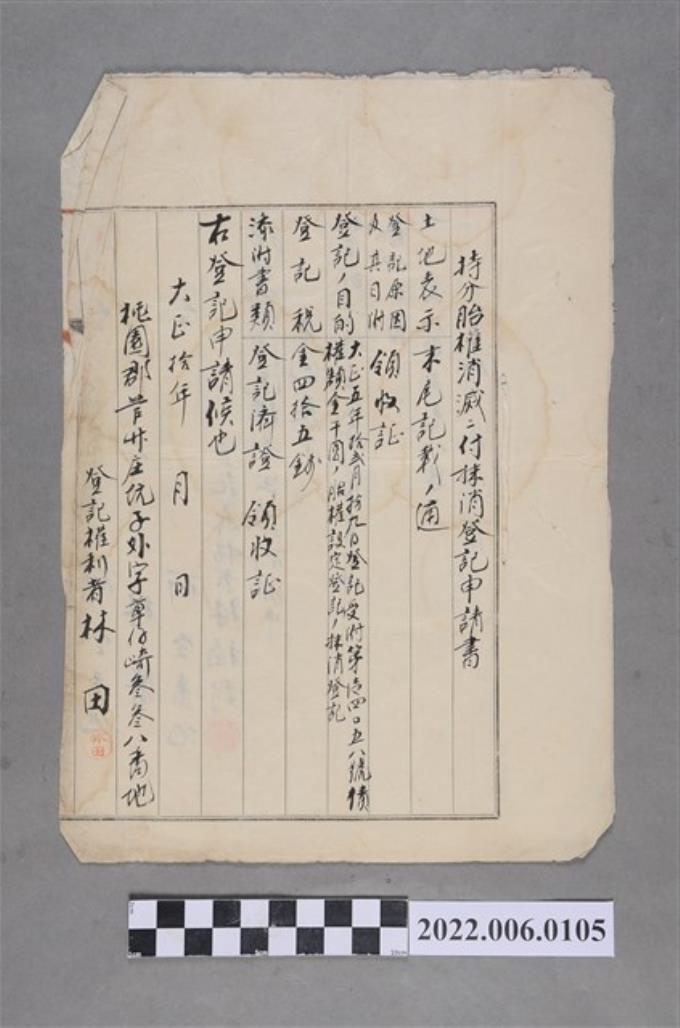 持分胎權消滅ニ付抹消登記申請書
土地表示 末尾記載ノ通
登記原因
及其日附 領收証
登記ノ目的 大正五年拾弐月拾九日登記受附第 四〇五八號債
權額金千圓ノ胎權設定登記ノ抹消登記
登記稅 金四拾五錢
添附書類 登記濟證 領收証
右登記申請候也
大正拾年 月 日
桃園郡 庄坑子外字草仔崎叁叁八番地
登記權利者 林 田
林田
2022.006.0105